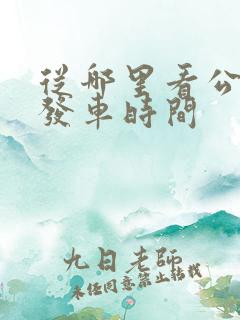 從哪里看公
發車時間
九日老師
未經同意禁止轉載